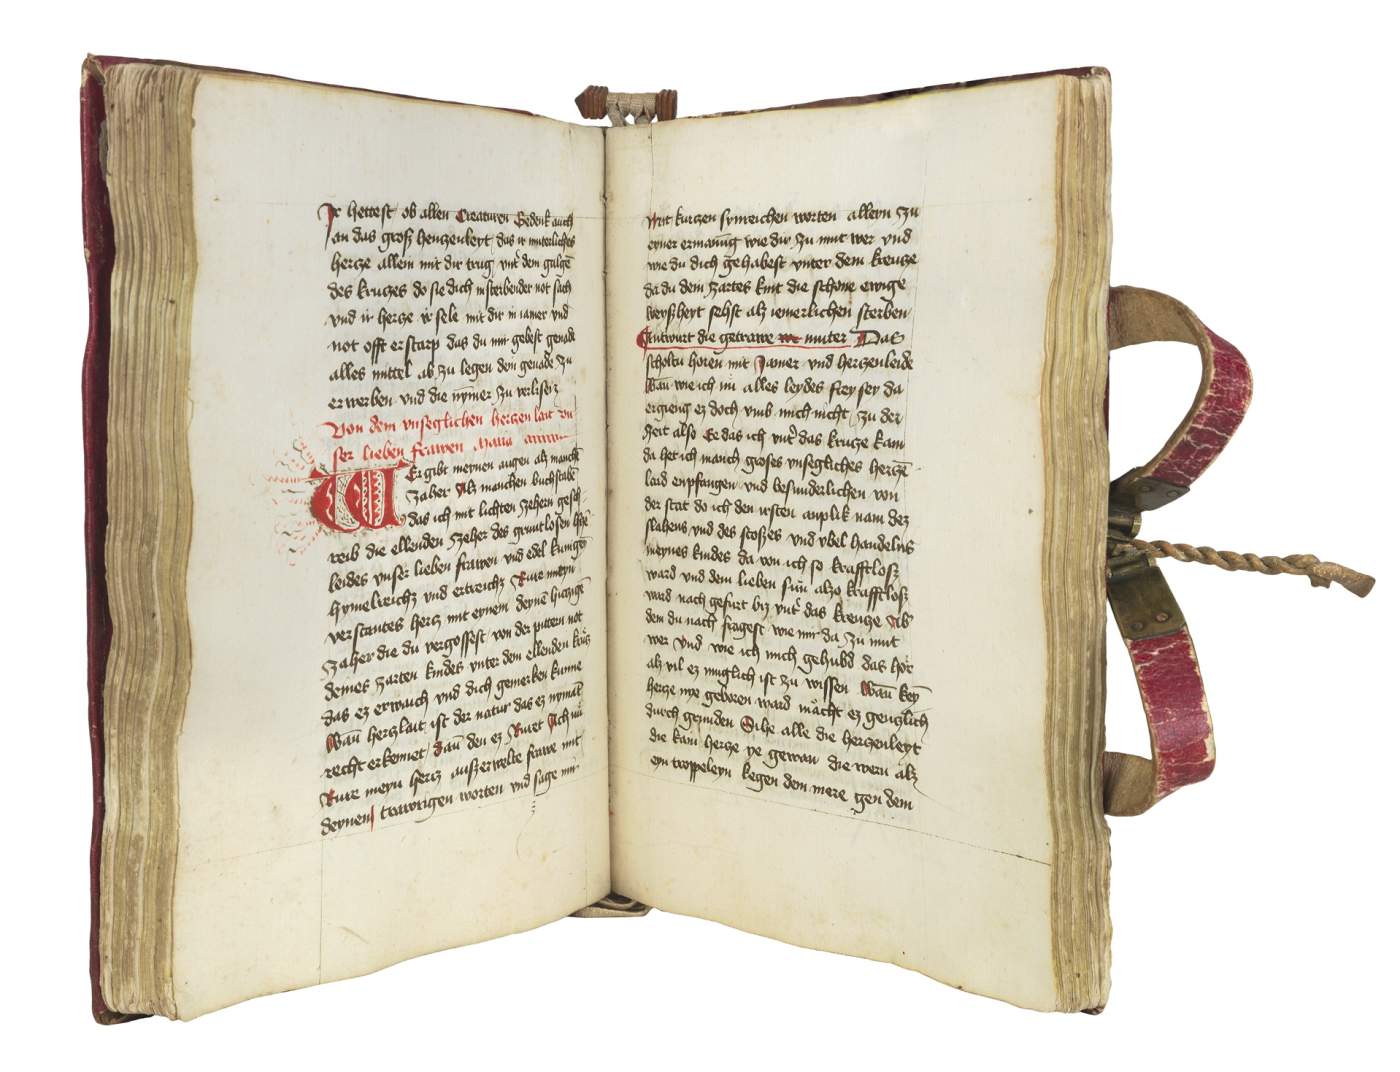 Ir hettest ob allen Creaturen Gedenk auch
an das groß hertzenleyt das ir muterliches
hercze allein mit dir trug vntͬ dem galgē
des kruczes do sie dich in sterbender not sach
vnd ir hercze ir sele mit dir in iamer vnd
not offt erstarp das du mir gebest genade
alles mittel ab zu legen dein genade zu
erwerben vnd die nȳmer zu verlisen
Von dem vnseglichen herczen lait vn
ser lieben frawen Maria
WEr gibt meynen augen alz manche
zaher Alz manchen buchstabē
das ich mit lichten zehern gesch
reib die ellenden zeher des gruntlosen hͤcz
leides vnser lieben frawen vnd edel kunigē
hymelreichz vnd ertreichz Rure meyn
verstantes hertz mit eynem deynē hiczigē
zaher die du vergossest von der pittern not
deines zarten kindes vnter dem ellenden krucz
das ez erwach vnd dich gemerken kunne
Wañ herczlait ist der natur das ez nymāt
recht erkennet dañ den ez Ruret Ach nu
Rure meyn hertz außerwelte frawe mit
deynen trawrigen worten vnd sage mir
Mit kurczen synreichen worten alleyn zu
eyner ermanūg wie dir zu mut wer vnd
wie du dich gehabest vnter dem kreucze
da du dem zartes kint die schone ewige
weyßheyt sehst alz iemerlichen sterben
Antwurt die getrawe muter Das
scholtu horen mit Jamer vnd herczenleide
Wañ wie ich nu alles leydes frey sey da
ergieng ez doch vmb mich nicht zu der
zeit also Ee das ich vntͬ das krucze kam
da het ich manch groses vnsegliches herczē
laid enpfangen vnd besunderlichen von
der stat do ich den ersten anplik nam dez
slahens vnd des stoßes vnd vbel handelns
meynes kindes da von ich so krafftloß
ward vnd dem lieben sun also krafftloß
ward nach gefurt biz vntͬ das kreucze Ab
dem du nach fragest wie mir da zu mut
wer vnd wie ich mich gehubd das hor
alz vil ez muglich ist zu wissen Wañ keȳ
hercze nye geboren ward macht ez genczlich
durch grunden Sihe alle die herczenleyt
die kain hercze ye gewan die wern alz
eyn troppeleyn kegen dem mere gen dem